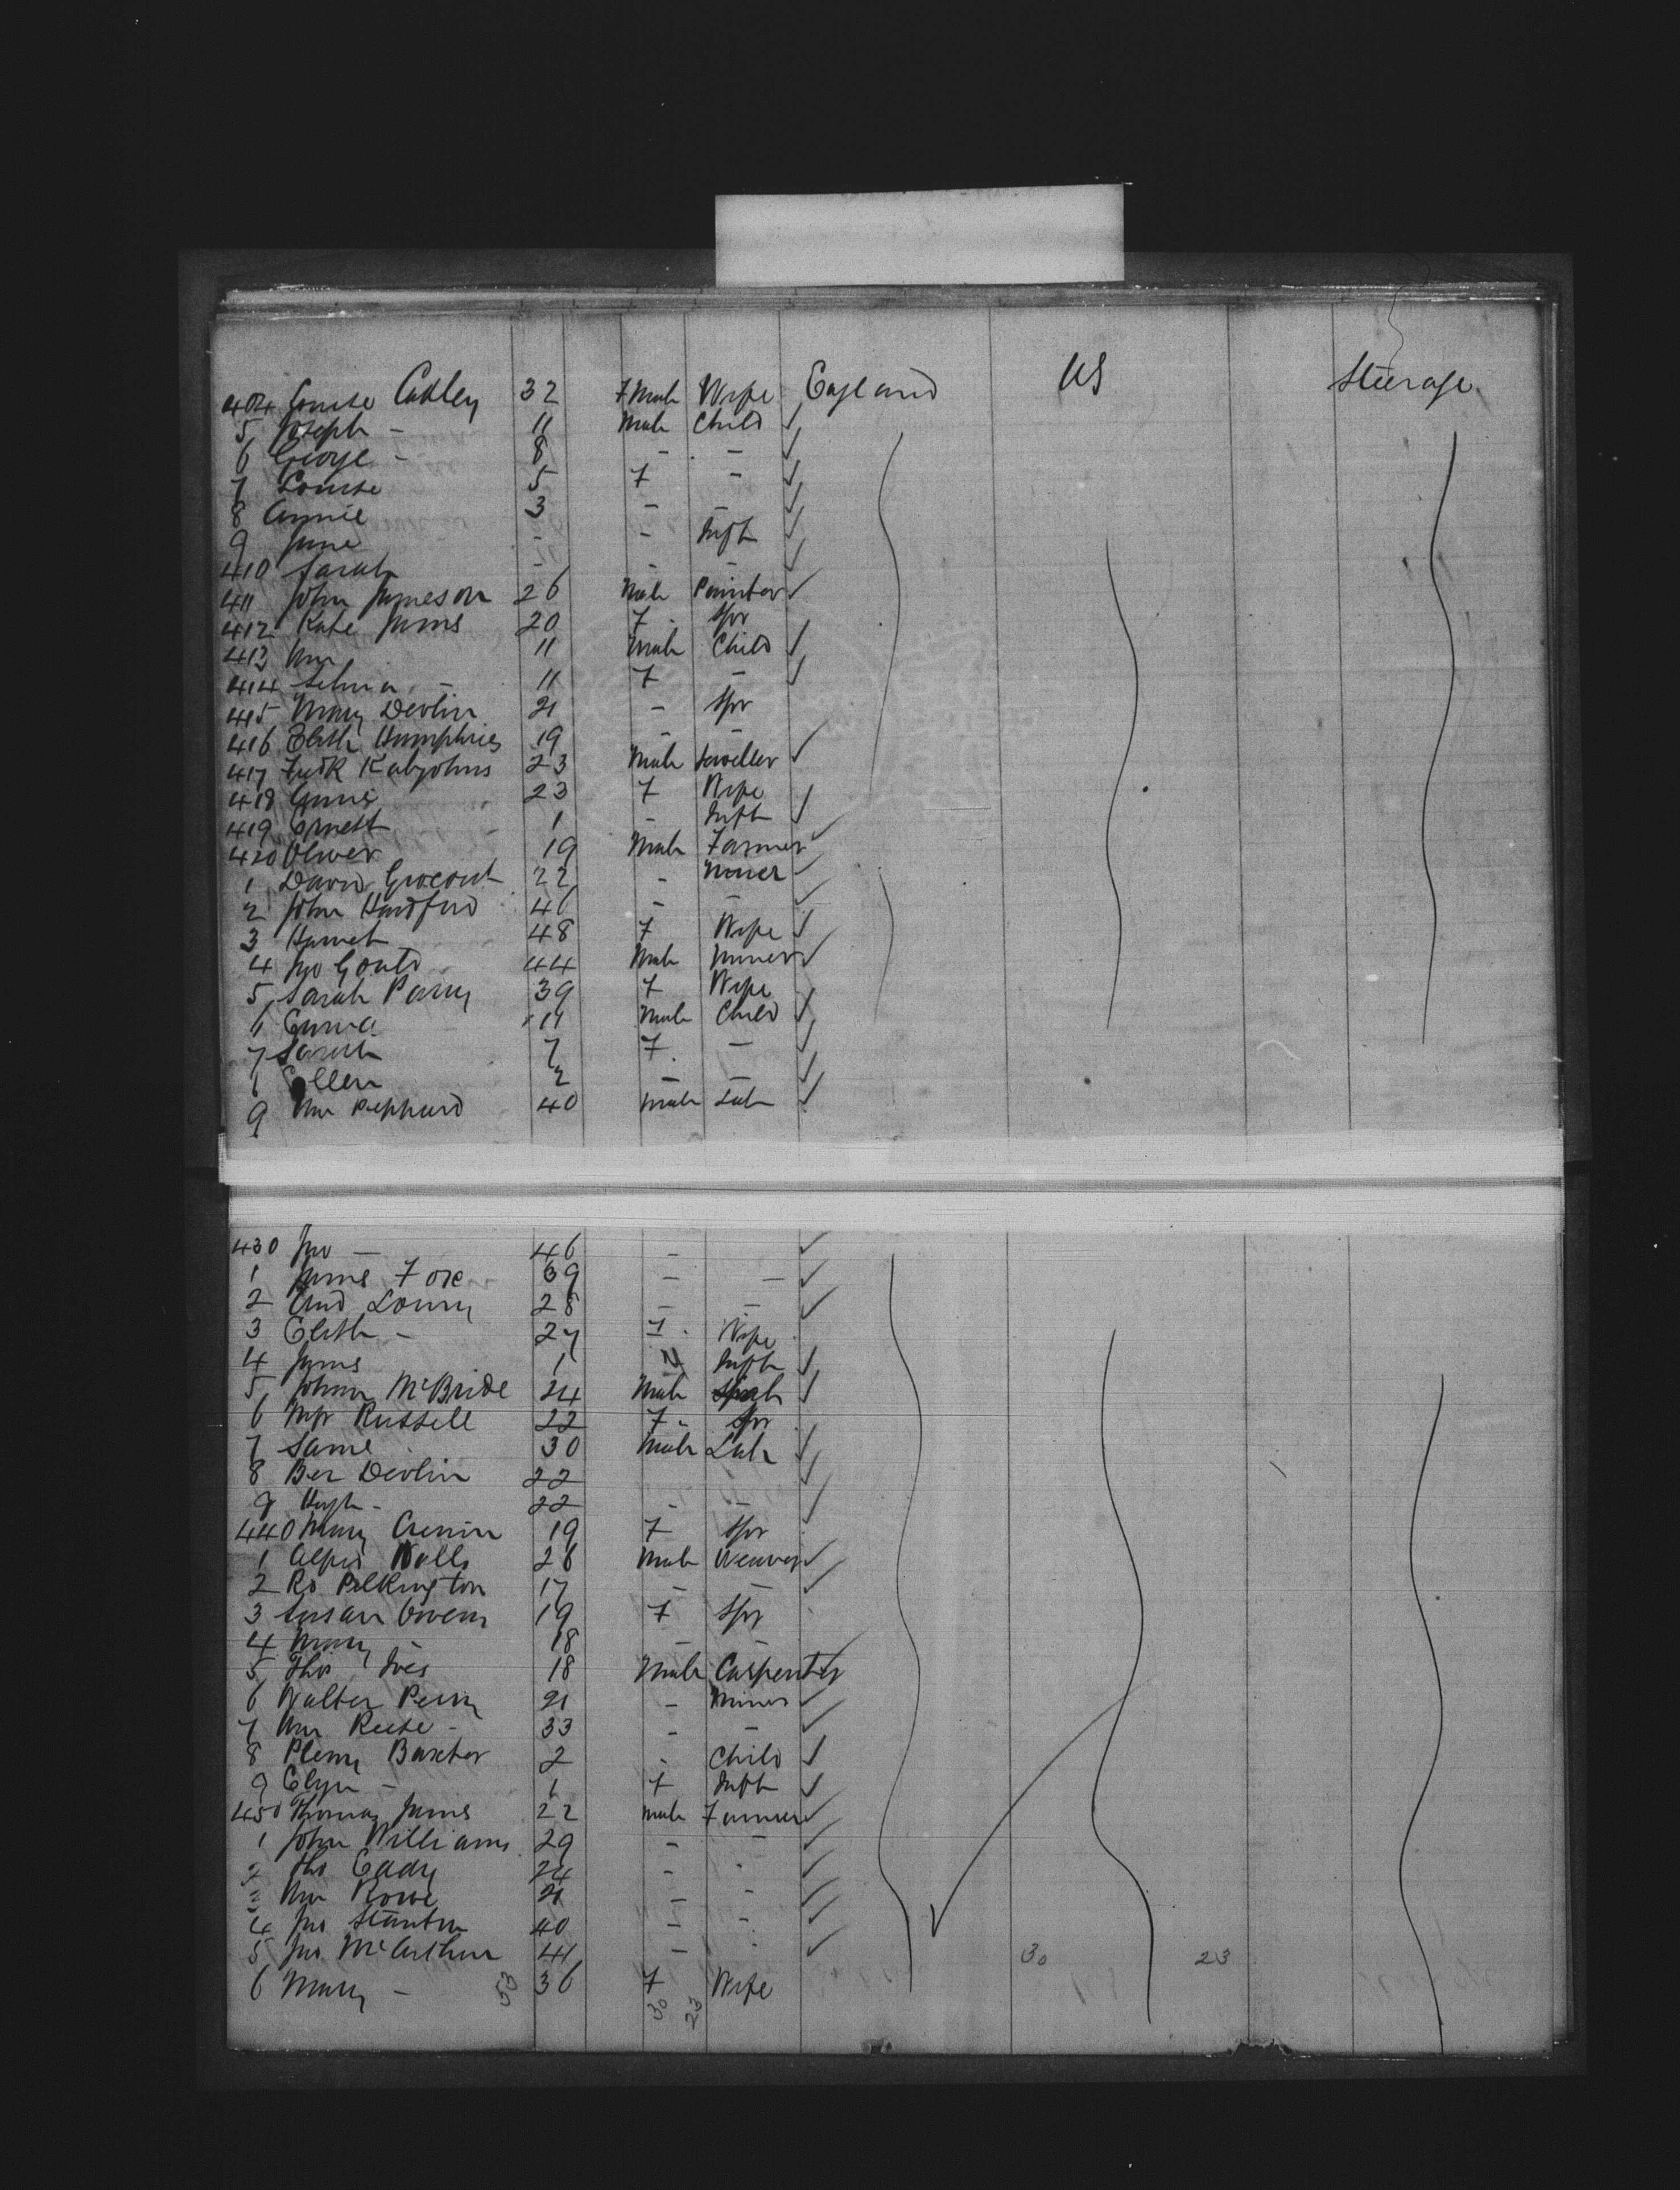 404 Louise Oakley 32 Female Wife England US Steerage
5 Joseph - 11 Male Child
6 George - 8 - -
7 Louise 5 F -
8 Annie 3 - -
9 Jane - - Inft
410 Sarah - - -
411 John Jameson 26 Male Painter
412 Kate James 20 F Spr
413 Wm 11 Male Child
414 Selina - 11 F -
415 Mary Devlin 21 - Spr
416 Elizth Humphries 19 - -
417 Fredk 23 Male
418 Annie 23 F Wife
419 Ernest 1 - Inft
420 Oliver 19 Male Farmer
1 David 22 - Miner
2 John 46 - -
3 Harriet 48 F Wife
4 Jno Gould 44 Male Miner
5 Sarah Parry 39 F Wife
6 Emma 11 Male Child
7 Sarah 7 F -
Ellen 2 - -
9 Wm 40 Male Lab
430 Jno - 46 -
1 James Fox 39 - -
2 And Lowry 28 - -
3 Elizth - 27 F Wife
4 James 1 Inft
5 McBride 24 Male
6 Russell 22 F - Spr
7 Same 30 Male Lab
8 Ber Devlin 22
9 Hugh - 22 - -
440 Mary 19 F Spr
1 Alfred Walls 26 Male Weaver
2 Ro Pilkington 17 - -
3 Susan Owens 19 F Spr
4 Mary - 18 - -
5 Thos Ives 18 Male Carpenter
6 Walter 21 - Miner
7 Wm Reese - 33 - -
8 Baxter 2 - Child
9 - 1 F Inft
450 Thomas James 22 Male Farmer
1 John Williams 29 - -
2 Tho Eddy 24 - -
3 Wm Rowe 21 - -
4 Jno Stanton 40 - -
5 Jno McArthur 41 - - 30 23
6 Mary - 53 36 F Wife
30 23